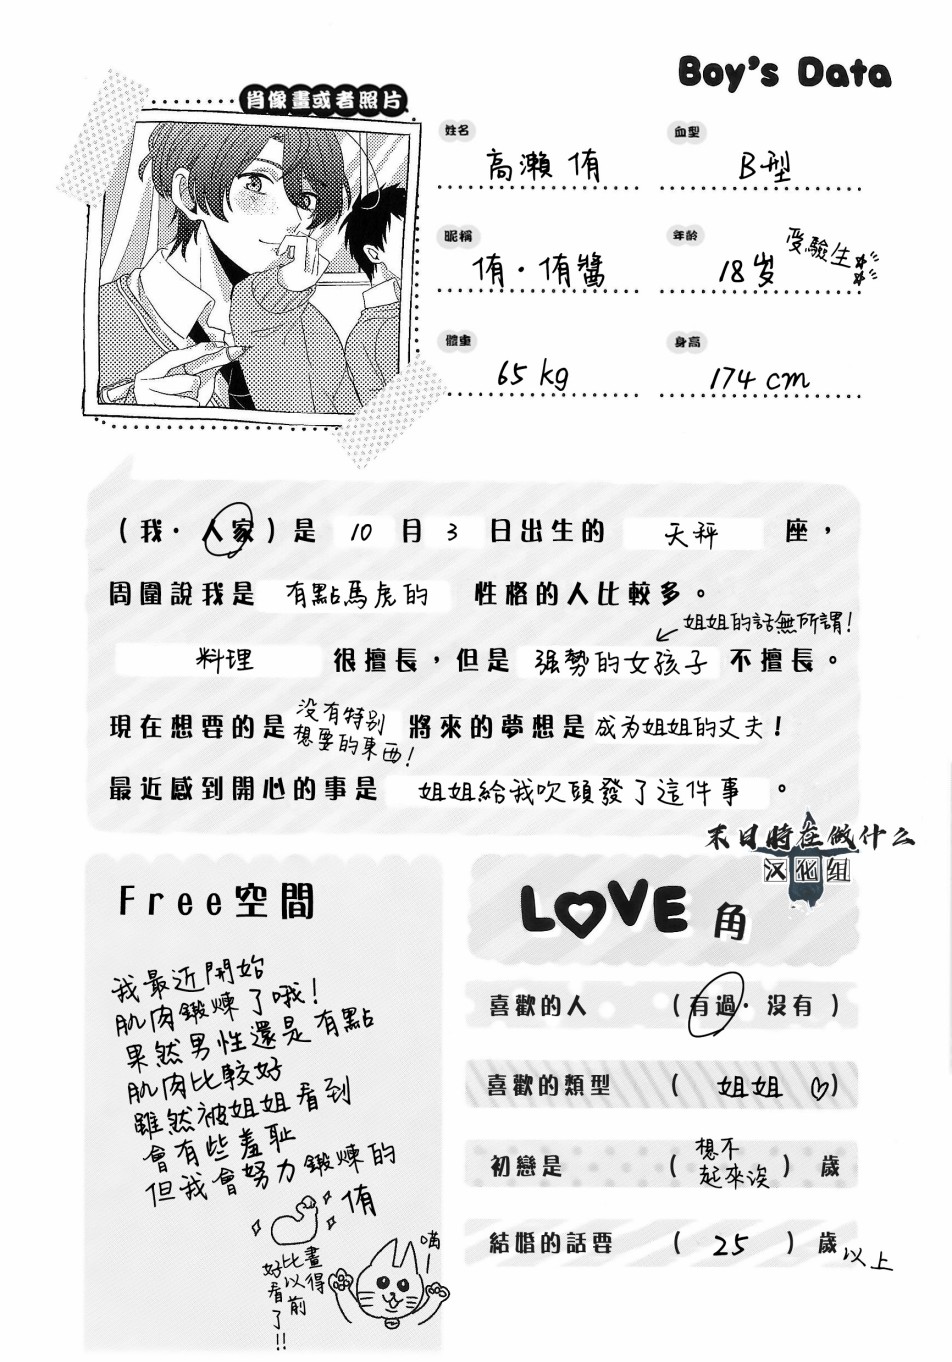 Boy's Data
肖像畫或者照片
姓名
高瀨 侑
血型
B型
昵稱
侑・侑醬
年齡
18岁
受驗生
體重
65 kg
身高
174 cm
（我・人家）是 10 月 3 日出生的 天秤 座，
周圍說我是 有點馬虎的 性格的人比較多。
姐姐的話無所謂！
料理 很擅長，但是 强勢的女孩子 不擅長。
現在想要的是 没有特别想要的東西！ 將來的夢想是 成为姐姐的丈夫！
最近感到開心的事是 姐姐給我吹頭發了這件事 。
末日時在做什么
汉化组
Free空間
我最近開始
肌肉鍛煉了哦！
果然男性還是有點
肌肉比較好
雖然被姐姐看到
會有些羞耻
但我會努力鍛煉的
侑
畫得
比以前
好看了!!
喵
LOVE 角
喜歡的人 （有過・沒有）
喜歡的類型 （ 姐姐 ♡）
初戀是 （ 想不起來诶 ） 歲
結婚的話要 （ 25 ） 歲以上